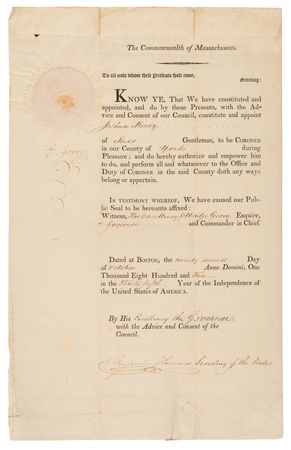 The Commonwealth of Massachusetts.
To all unto whom these Presents shall come,
Greeting:
KNOW YE, That We have constituted and
appointed, and do by these Presents, with the Ad-
vice and Consent of our Council, constitute and appoint
Joshua
of Gentlemen, to be CORONER
in our County of York during
Pleasure; and do hereby authorize and empower him
to do, and perform all and whatsoever to the Office and
Duty of CORONER in the said County doth any ways
belong or appertain.
IN TESTIMONY WHEREOF, We have caused our Pub-
lic Seal to be hereunto affixed:
Witness, Elbridge Gerry Esquire,
Governor and Commander in Chief.
Dated at BOSTON, the twenty second Day
of October Anno Domini, One
Thousand Eight Hundred and Ten
in the Thirty fifth Year of the Independence of
the United States of AMERICA.
By His Excellency the Governor
with the Advice and Consent of the
Council.
Benjamin Homans Secretary of the State
E. Gerry